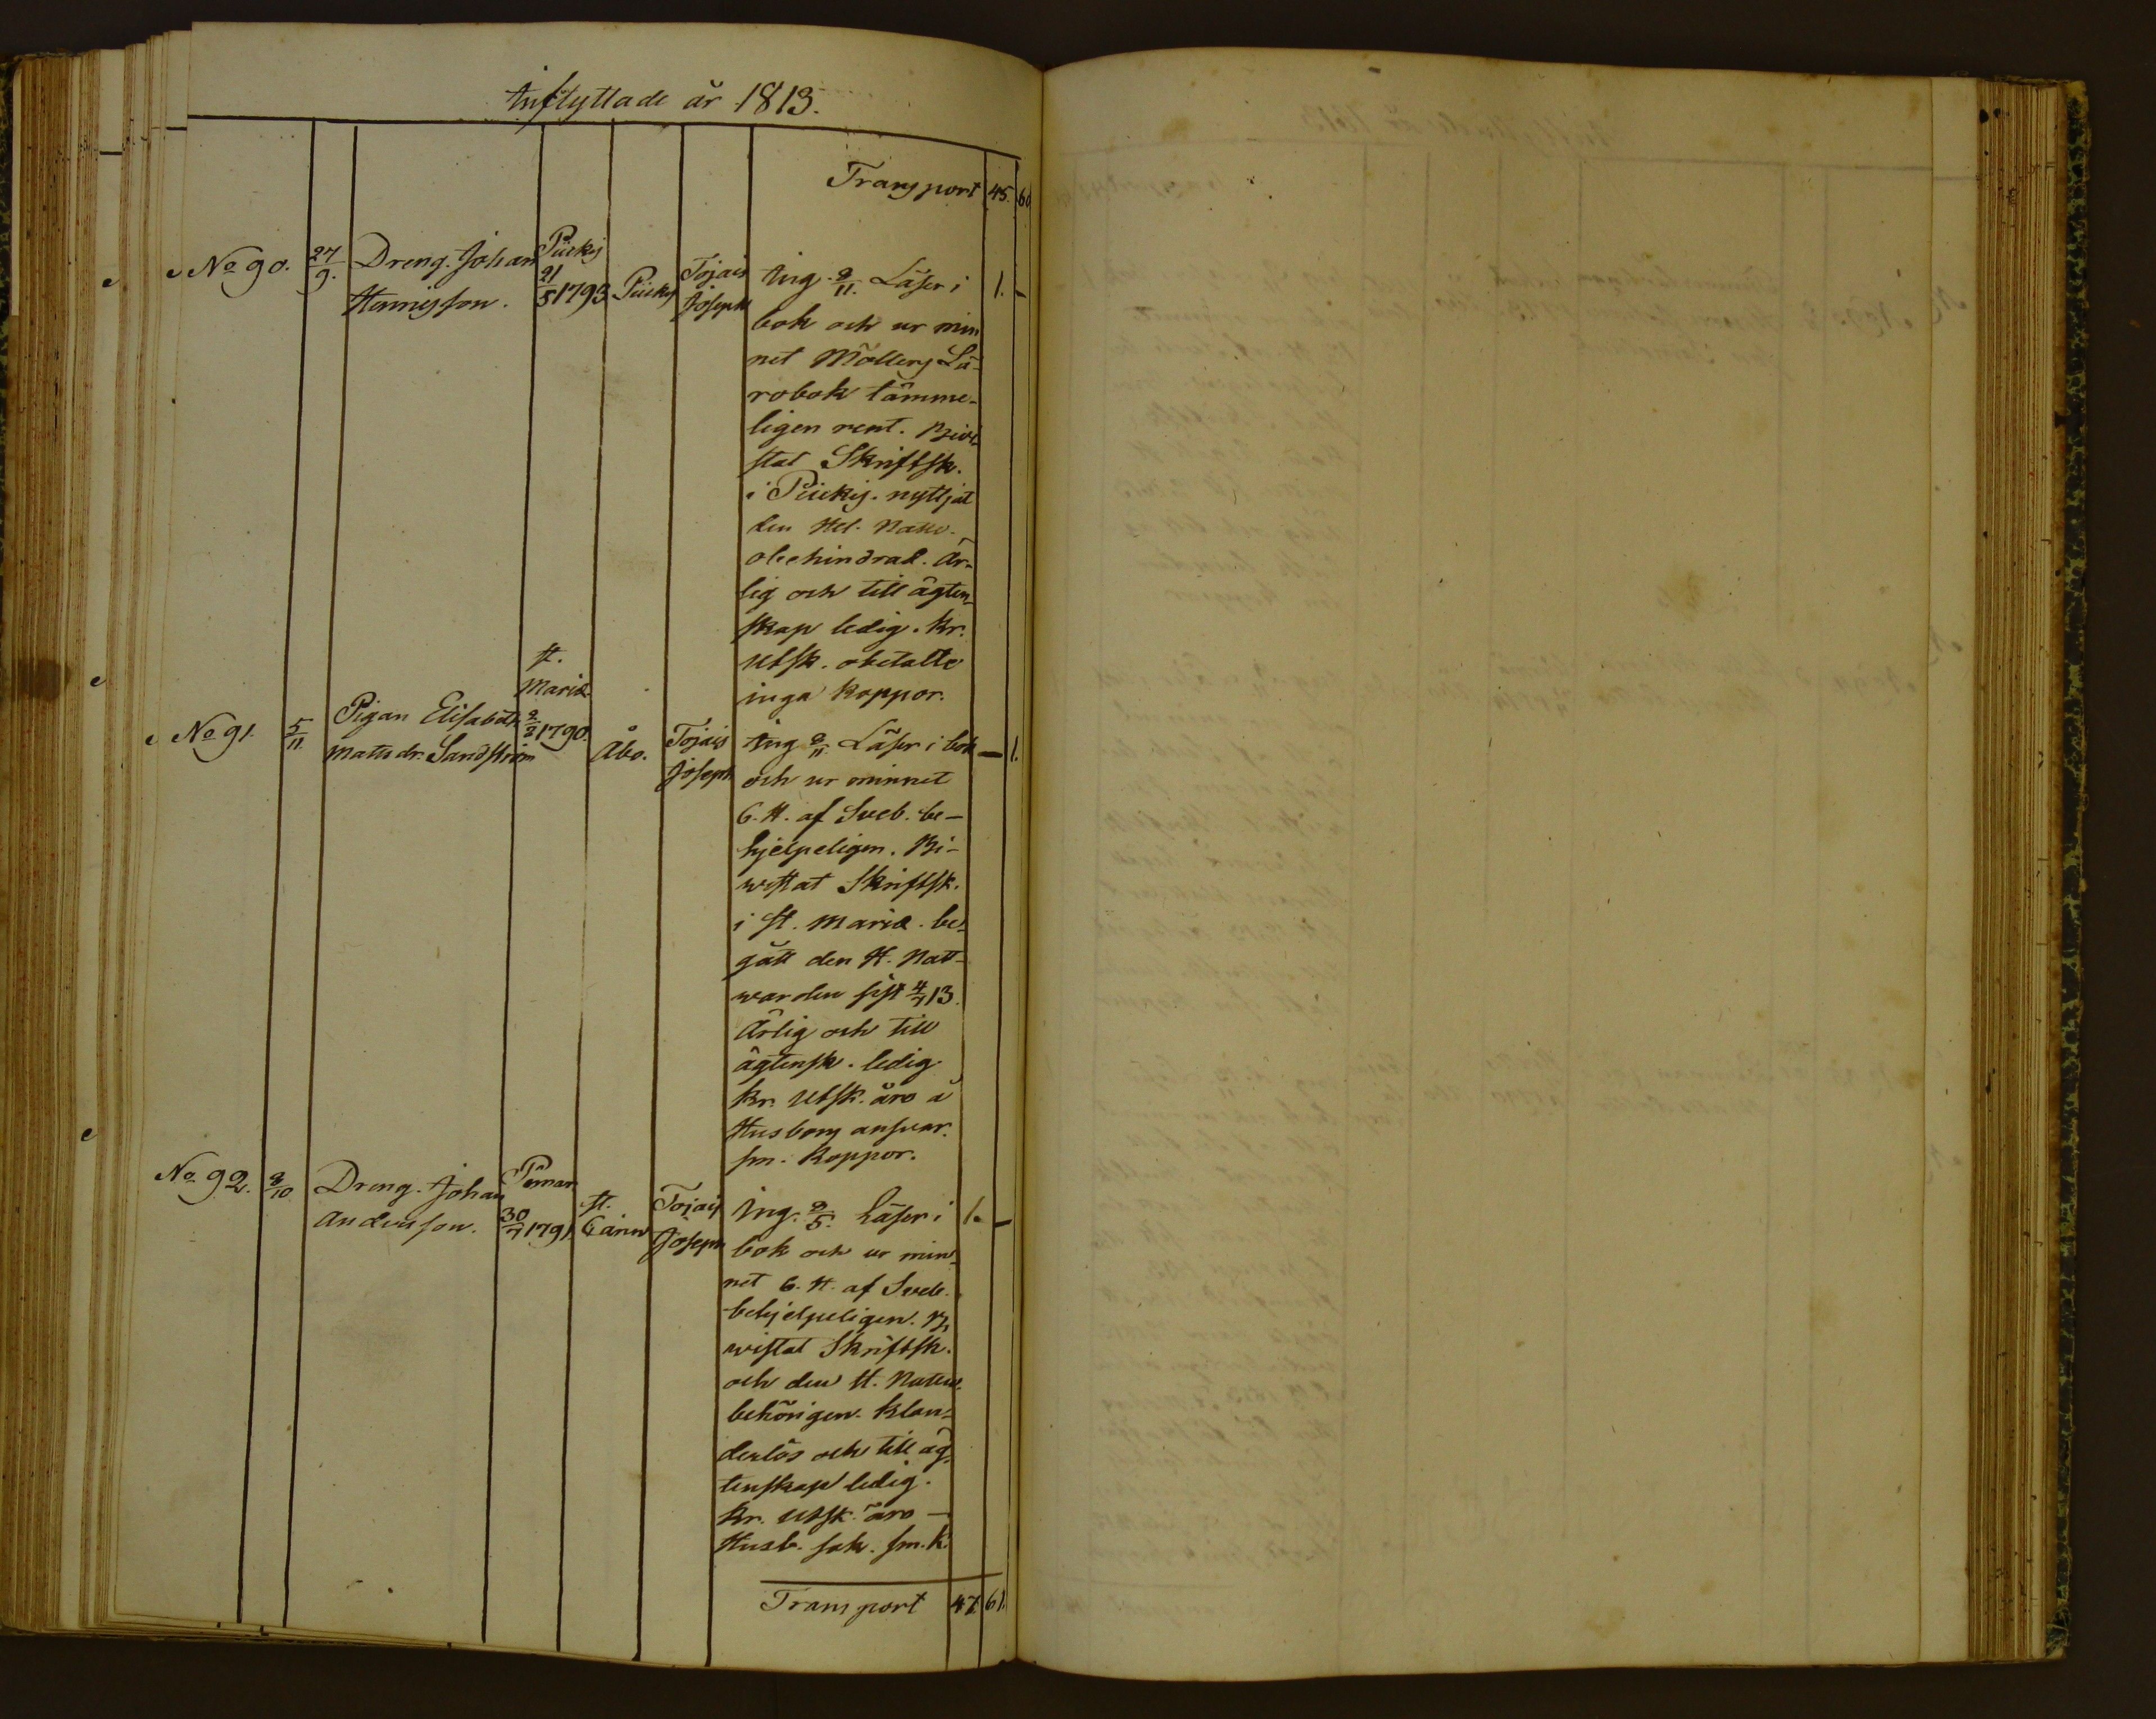 Inflyttade år 1813.
Transport 45. 60
No 90. 27/9. Dreng. Johan Hennisson. Piickis 21/5 1793 Piickis Tojais Joseph
Ing. 2/11. Läser i 1. -
bok och ur min
net Möllers Lä-
robok tämme-
ligen rent. Bivi-
stat Skriftsk.
i Piickis. nyttjat
den Hel. Nattv.
obehindrad. Är-
lig och till ägten-
skap ledig. Kr.
Utsk. obetalte
inga koppor.
No 91. 5/11 Pigan Elisabeth Matts dr. Sandström St. Mariæ 2/2 1790. Åbo. Tojais Joseph
Ing 2/11. Läser i bok - 1.
och ur minnet
C. H. af Sveb. be-
hjelpeligen. Bi-
wistat Skriftsk.
i St. Mariæ. be-
gått den H. Natt-
warden sist 4/7 13.
Ärlig och till
ägtensk. ledig
Kr. Utsk. äro å
Husbons ansvar.
sm. Koppor.
No 92. 8/10 Dreng. Johan Andersson. Pemar 30/7 1791 St. Carin Tojais Joseph
Ing. 2/5. Läser i 1. -
bok och ur min-
net C. H. af Sveb.
behjelpeligen. Bi-
wistat Skriftsk.
och den H. Nattw.
behörigen. Klan-
derlös och till äg-
tenskap ledig.
Kr. Utsk. äro -
Husb. sak. sm. K.
Transport 47. 61.